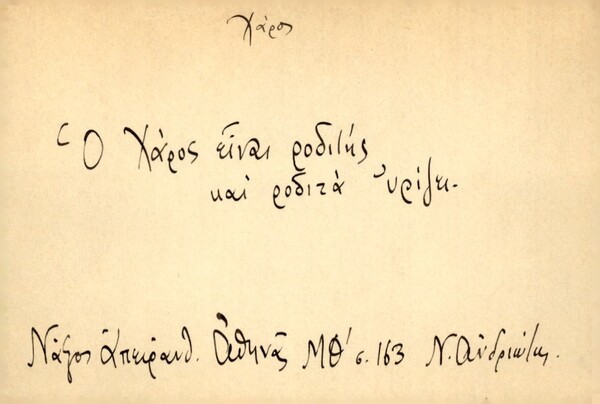 Χάρος
Ὁ Χάρος εἶναι ροδίτης
καὶ ροδιτὰ ὑρίζει.
Νάξος Ἀπείρανθ. Ἀθηνᾶ ΜΘ' σ. 163 Ν. Ἀνδριώτης.